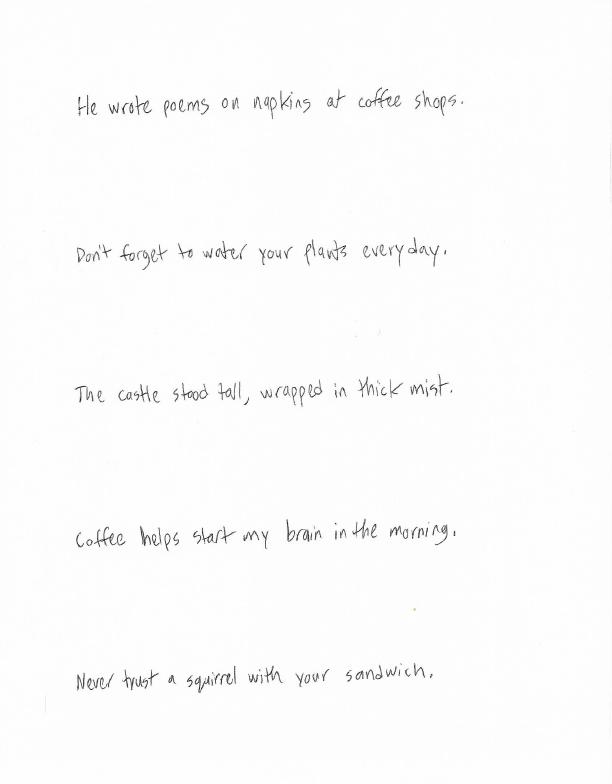 He wrote poems on napkins at coffee shops.
Don't forget to water your plants everyday.
The castle stood tall, wrapped in thick mist.
Coffee helps start my brain in the morning.
Never trust a squirrel with your sandwich.